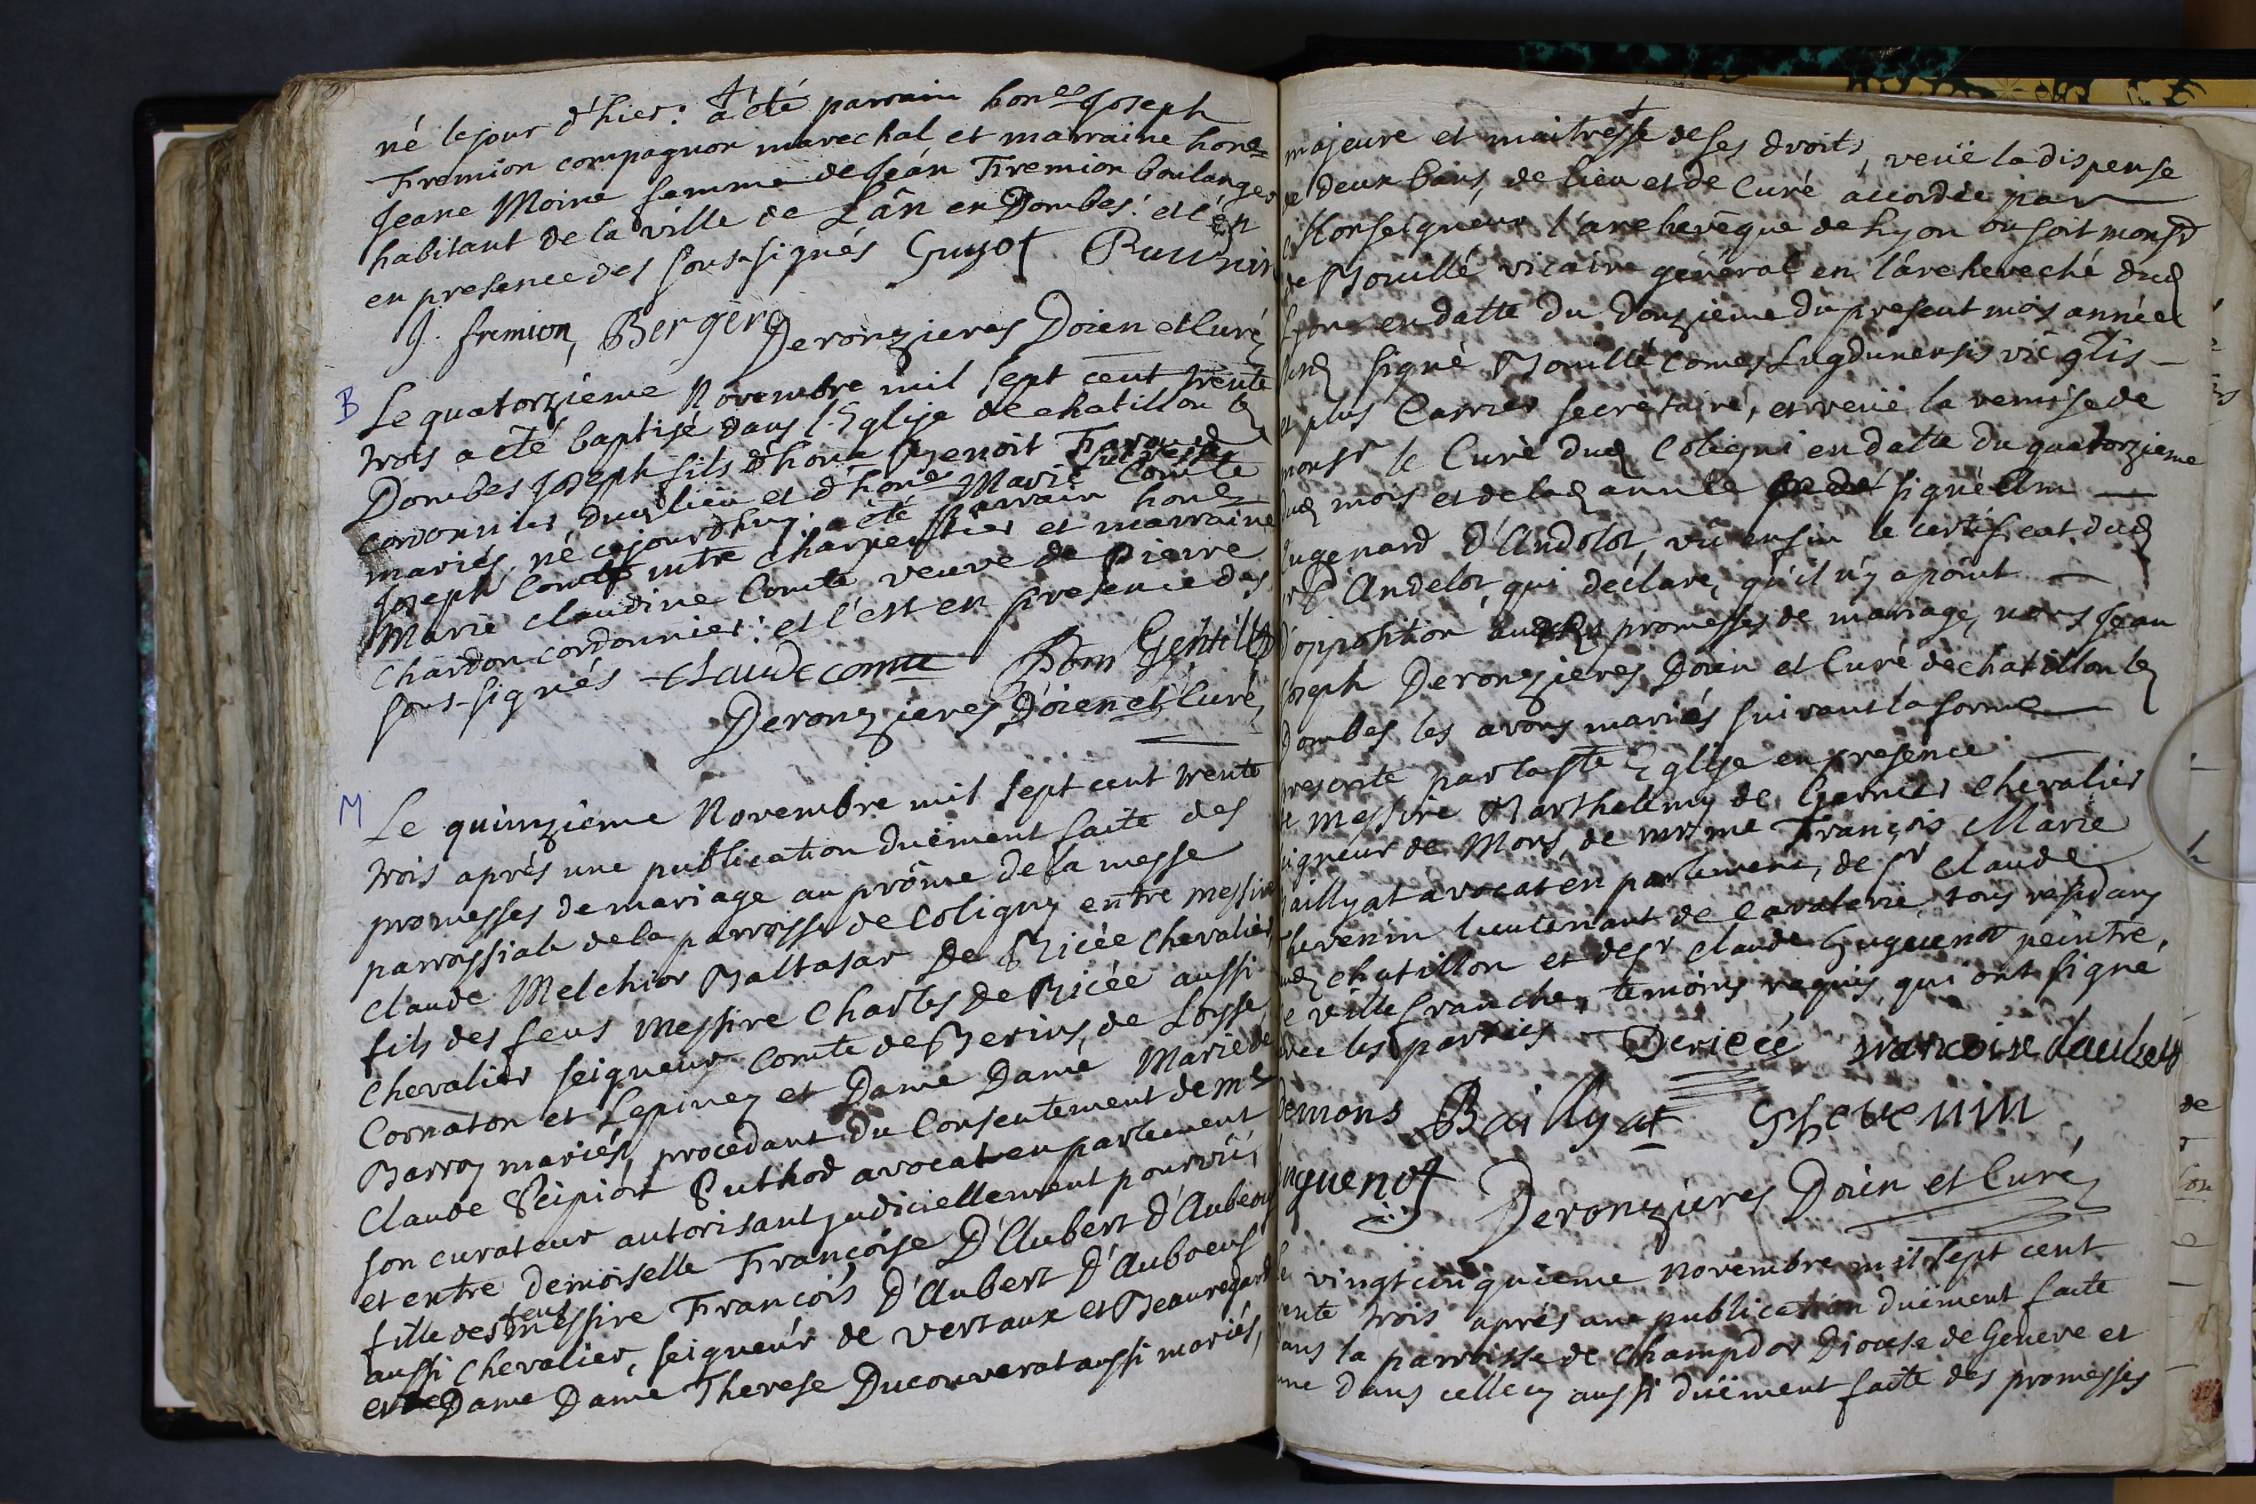 né le jour d'hier: a été parrain hon.e Joseph
Fremion compagnon marechal, et marraine hon.e
Jeane Moine femme de Jean Fremion boulanger
habitant de la ville de Lân en Dombes: et c'ést
en presence des sous-signés Guyot
J. fremion, Bergere
Deronzieres Doien et Curé
B
Le quatorziéme Novembre mil sept cent trente
trois a été baptisé dans l'Eglise de chatillon les
Dombes Joseph fils d'hon.e Benoit
cordonnier dud lieu et d'hon.e Marie Comte
mariés, né ce jourdhuy: a été parrain hon.e
Joseph Comte mtre charpentier et marraine
Marie Claudine Comte veuve de Pierre
Chardon cordonnier: et c'est en presence des
sous-signés claude comte Dom Gentil
Deronzieres Doien et Curé
M
Le quinziéme Novembre mil sept cent trente
trois aprés une publication duëment faite des
promesses de mariage au prône de la messe
parroissiale de la parroisse de Coligny entre messire
Claude Melchior Baltasar De Ricée Chevalier
fils des feus messire Charles de Ricée aussi
chevalier seigneur Comte de Berins, de Loysse,
Cornaton et Lepiney et Dame Dame Marie de
Barroy mariés, procedant du Consentement de me
Claude Scipion Puthod avocat en parlement
son curateur autorisant judiciellement pourvû,
et entre demoiselle Françoise D'Aubert d'Auboeuf
fille des feus messire François D'Aubert D'Auboeuf
aussi chevalier, seigneur de vertaux et Beauregard
et Dame Dame Therese Ducouverat aussi mariés,
majeure et maitresse de ses droits, veüe la dispense
de deux bans, de lieu et de Curé accordée par
Monseigneur l'archevêque de Lyon ou soit monsr
de Rouillé vicaire général en l'archeveché dud
Lyon en datte du douziéme du present mois année
signé Rouillé comes Lugdunensis vic glis
et plus Carrier secretaire, et veüe la remise de
monsr le Curé dud Coligni en datte du quatorzieme
dud mois et de lad année signé
Jugenard d'Andolot, vû ensin le certificat dud
sr d'Andelot, qui déclare, qu'il n'y a point
d'opposition promesses de mariage, nous Jean
Joseph Deronzieres Doien et Curé de chatillon les
Dombes les avons mariés suivant la forme
prescrite par la Ste Eglise en presence
de messire Barthelemy de Garnier chevalier
seigneur de Mons, de François Marie
Baillyat avocat en parlement, de sr Claude
Thevenin lieutenant de Cavalerie, tous residans
aud chatillon et de sr claude Huguenot peintre,
de villefranche, temoins requis, qui ont signé
avec les parties Dericée francoise daubert
Demons Baillyat Thevenin
huguenot Deronzieres Doien et Curé
Le vingt cinquieme novembre mil sept cent
trente trois aprés une publication duëment faite
dans la parroisse de Champdor Diocese de Geneve et
une dans celle cy aussi duëment faite des promesses